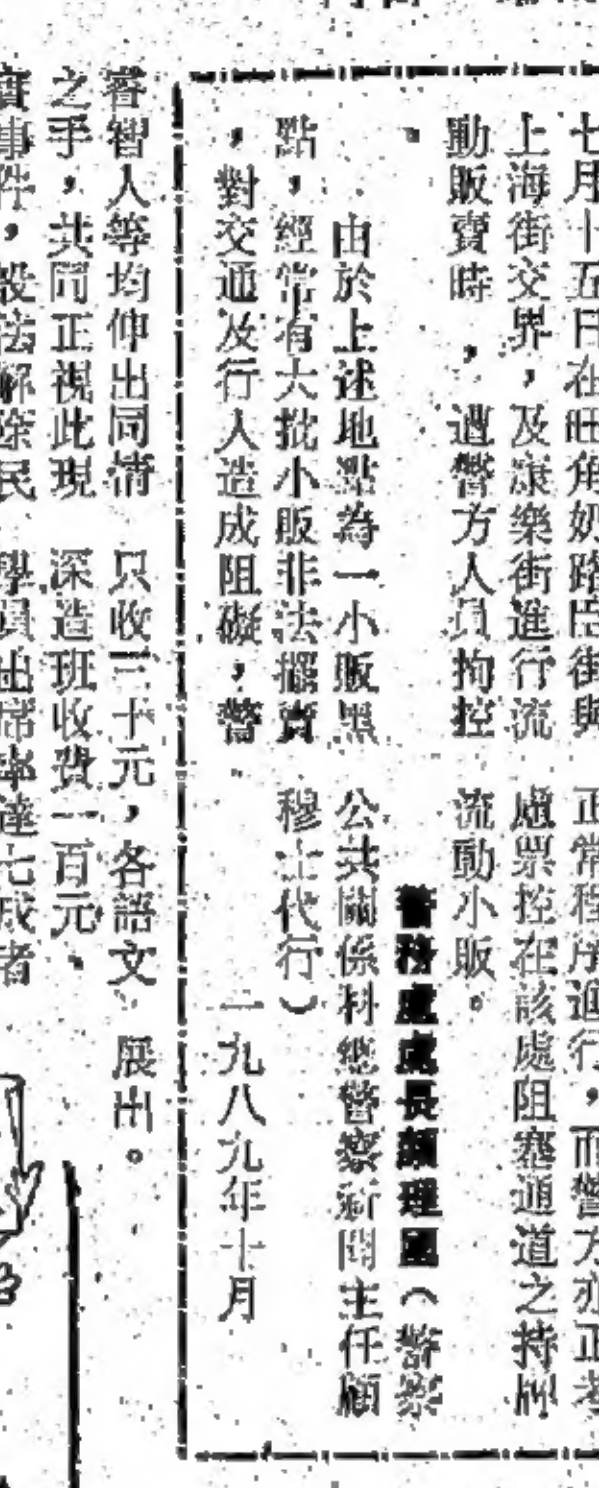 七月十五日在旺角奶路臣街與
上海街交界，及康樂街進行流
動販賣時，遭警方人員拘控
。
由於上述地點為一小販黑
點，經常有大批小販非法擺賣
，對交通及行人造成阻礙，警
正常程序進行，而警方亦正考
慮票控在該處阻塞通道之持牌
流動小販。
警務處處長顏理國（警察
公共關係科總警察新聞主任顧
穆士代行）
一九八九年十月
睿智人等均伸出同情
之手，共同正視此現
事件，設法解除民
只收三十元，各語文
深造班收費一百元，
學員出席率達七成者
展出。